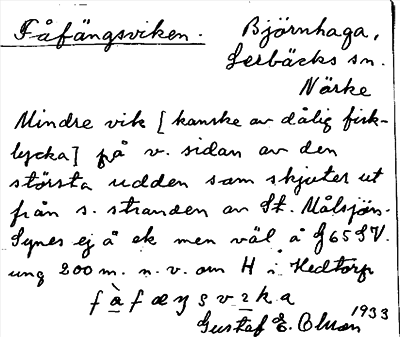 Fåfängsviken. Björnhaga,
Lerbäcks sn.
Närke
Mindre vik [kanske av dålig fisk-
lycka] på v. sidan av den
största udden som skjuter ut
från s. stranden av St. Målsjön.
Synes ej å ek men väl å G65SV.
ung 200 m. n. v. om H i Hedtorp
fàfæŋsvıka
Gustaf E. Olsson 1933